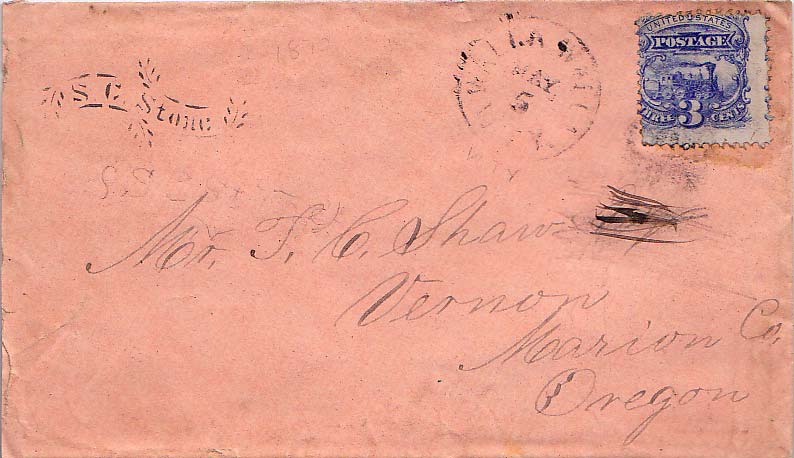 S. C. Stone
WALLA WALLA
MAY
5
UNITED STATES
POSTAGE
THREE 3 CENTS
Mr. T. C. Shaw
Vernon
Marion Co.
Oregon